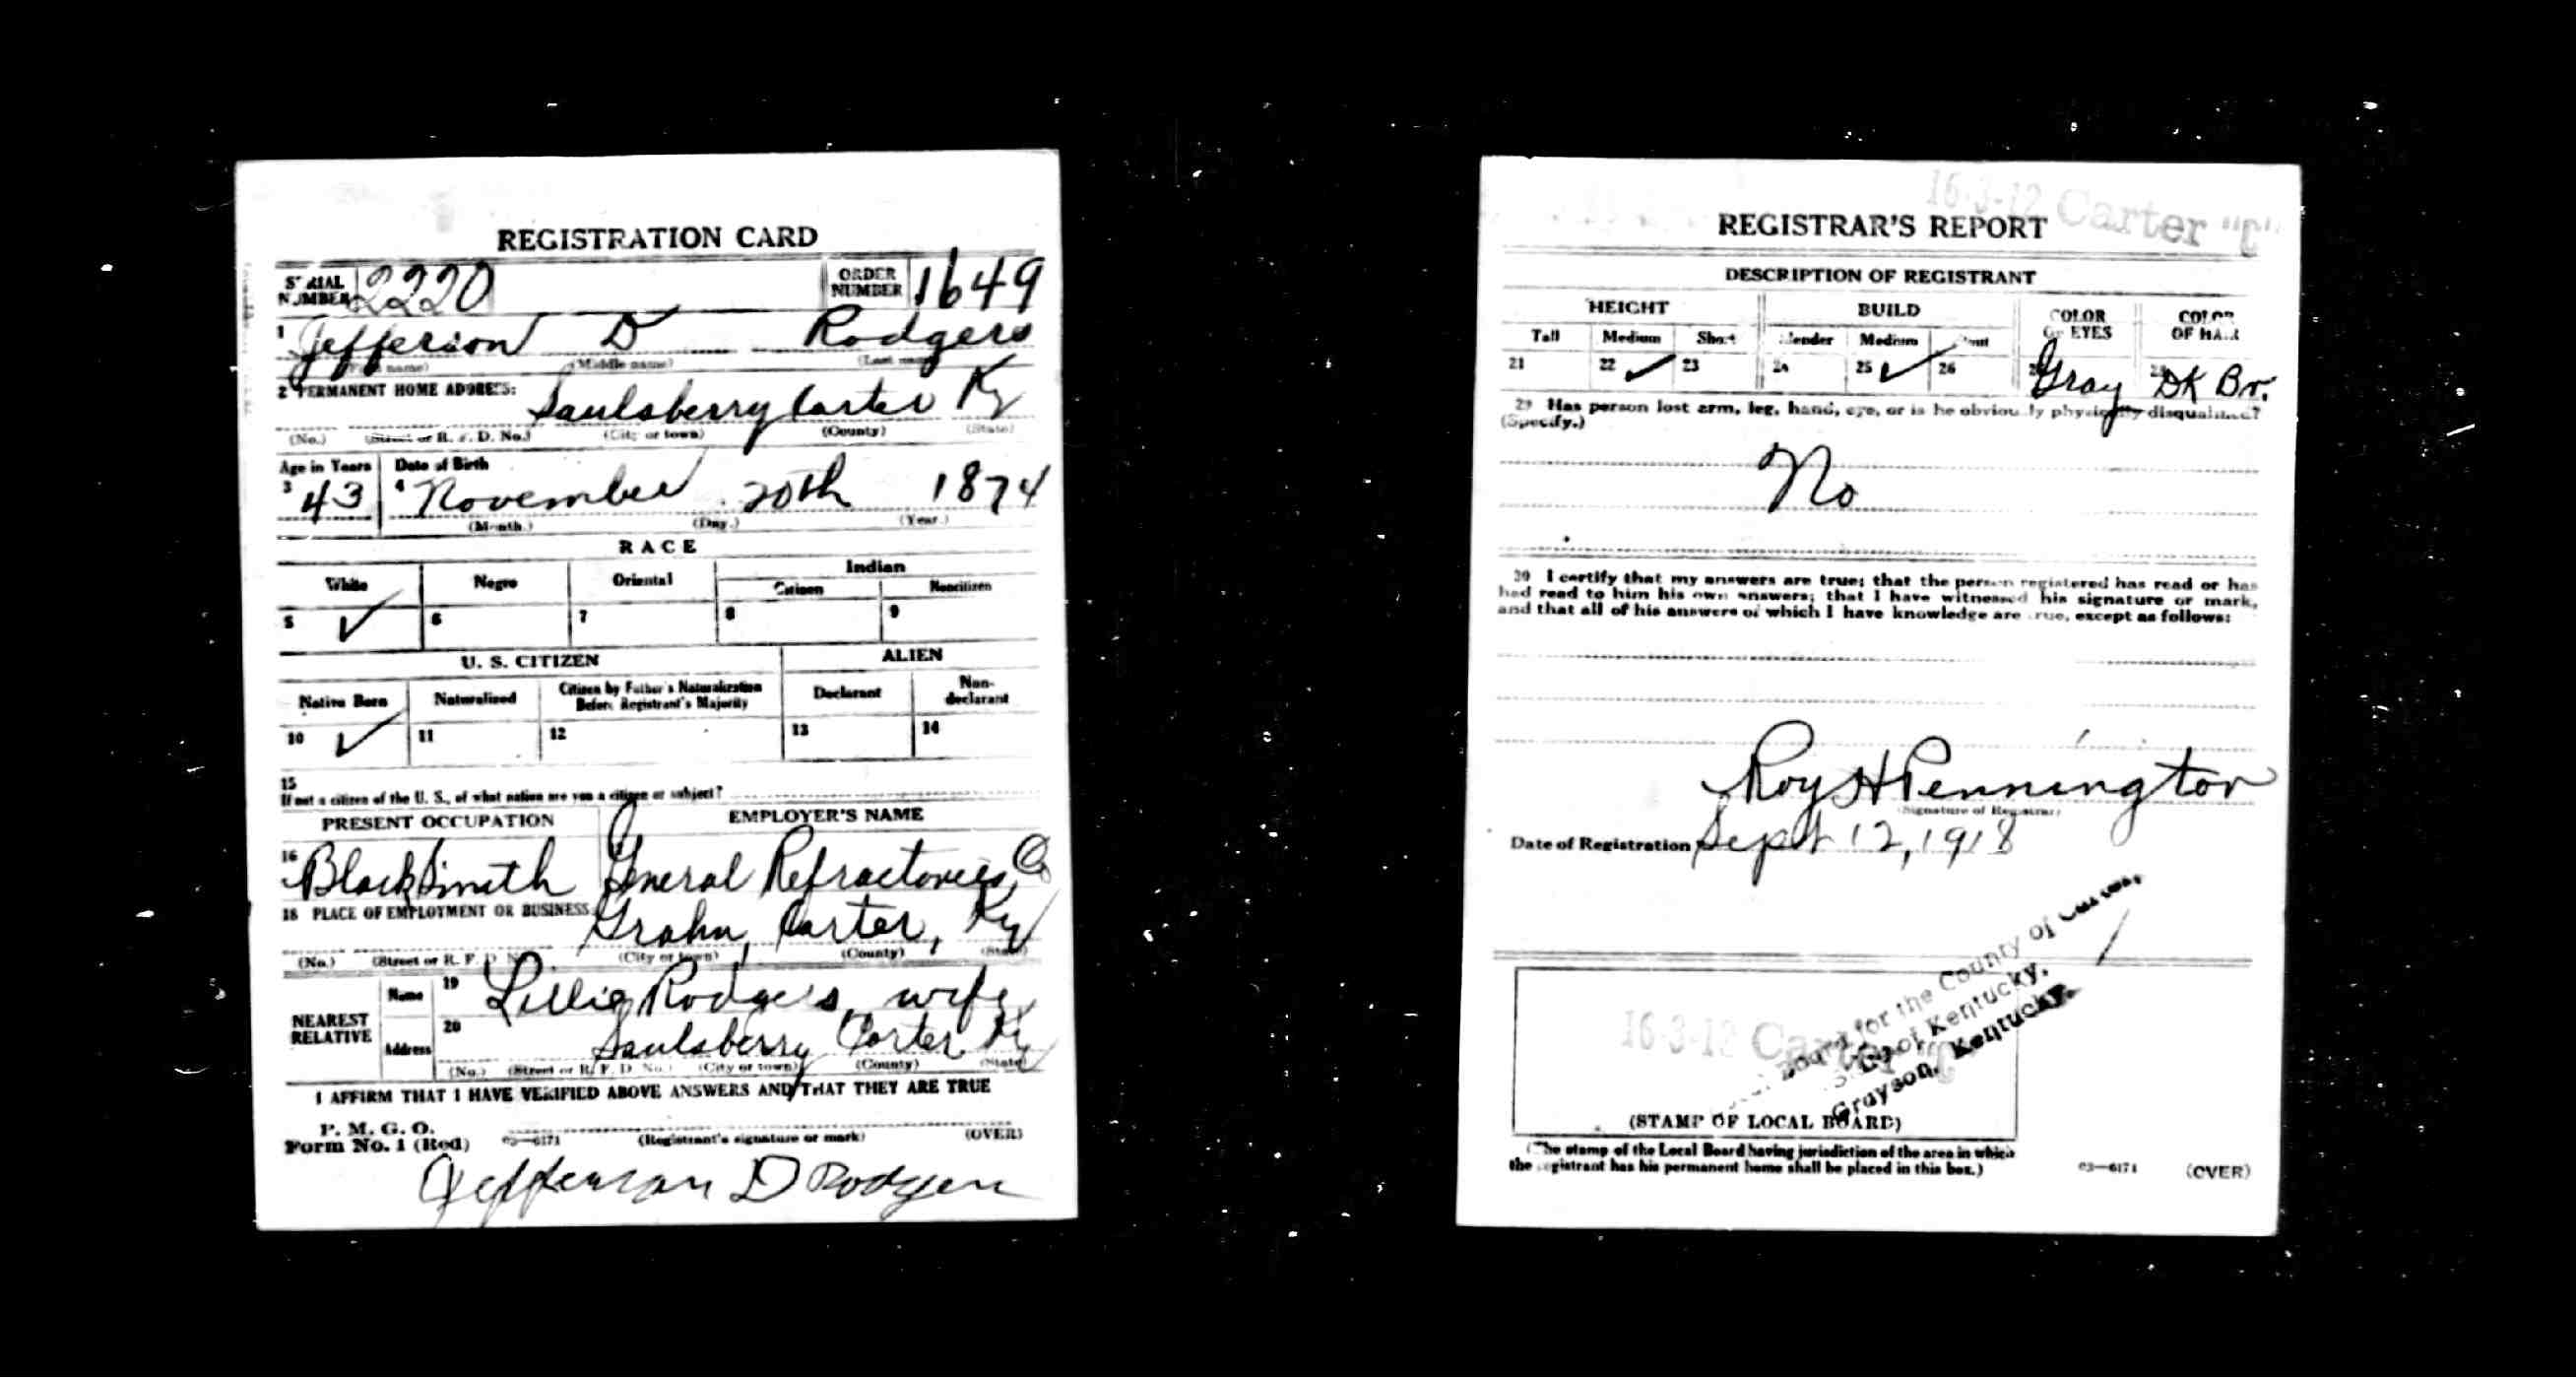 REGISTRATION CARD
SERIAL NUMBER 2220 ORDER NUMBER 1649
1 Jefferson D Rodgers
(First name) (Middle name) (Last name)
2 PERMANENT HOME ADDRESS: Saulsberry Carter Ky
(No.) (Street or R. F. D. No.) (City or town) (County) (State)
Age in Years Date of Birth
3 43 4 November 20th 1874
(Month.) (Day.) (Year.)
RACE
White Negro Oriental Indian
Citizen Noncitizen
5 ✓ 6 7 8 9
U. S. CITIZEN ALIEN
Native Born Naturalized Citizen by Father's Naturalization Before Registrant's Majority Declarant Non-declarant
10 ✓ 11 12 13 14
15
If not a citizen of the U. S., of what nation are you a citizen or subject?
PRESENT OCCUPATION EMPLOYER'S NAME
16 BlackSmith General Refractories Co
18 PLACE OF EMPLOYMENT OR BUSINESS:
Grahn, Carter, Ky
(No.) (Street or R. F. D. No.) (City or town) (County) (State)
NEAREST RELATIVE Name 19 Lillie Rodgers, wife
Address 20 Saulsberry Carter Ky
(No.) (Street or R. F. D. No.) (City or town) (County) (State)
I AFFIRM THAT I HAVE VERIFIED ABOVE ANSWERS AND THAT THEY ARE TRUE
P. M. G. O.
Form No. 1 (Red) 03—6171 (Registrant's signature or mark) (OVER)
Jefferson D Rodgers
16-3-12 Carter "C"
REGISTRAR'S REPORT
DESCRIPTION OF REGISTRANT
HEIGHT BUILD COLOR OF EYES COLOR OF HAIR
Tall Medium Short Slender Medium Stout
21 22 ✓ 23 24 25 ✓ 26 Gray DK Br.
29 Has person lost arm, leg, hand, eye, or is he obviously physically disqualified?
(Specify.)
No
30 I certify that my answers are true; that the person registered has read or has
had read to him his own answers; that I have witnessed his signature or mark,
and that all of his answers of which I have knowledge are true, except as follows:
Roy H Pennington
(Signature of Registrar)
Date of Registration Sept 12, 1918
16-3-12 Carter "C"
Board for the County of Carter,
State of Kentucky,
Grayson, Kentucky.
(STAMP OF LOCAL BOARD)
(The stamp of the Local Board having jurisdiction of the area in which
the registrant has his permanent home shall be placed in this box.)
03—6171 (OVER)